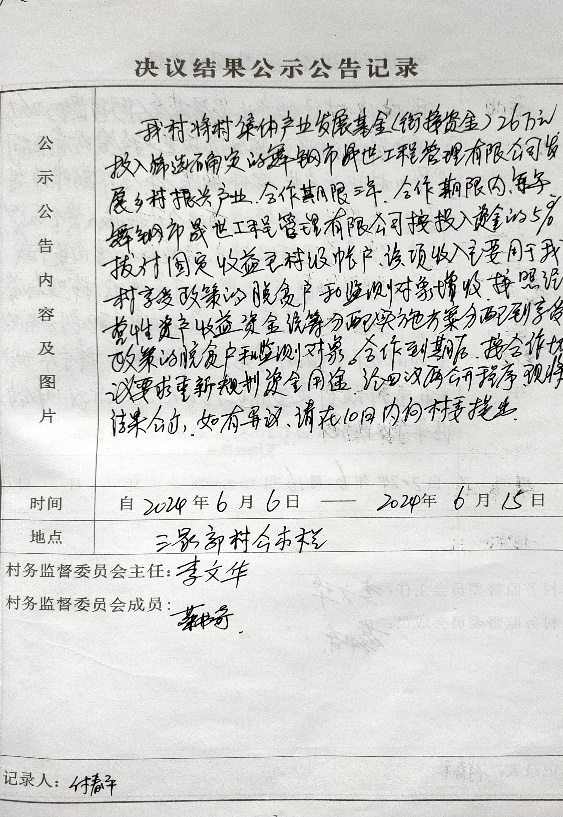 决议结果公示公告记录
公示公告内容及图片
我村将村集体产业发展基金(衔接资金)26万元
投入筛选确定的舞钢市晟世工程管理有限公司发
展乡村振兴产业、合作期限三年。合作期限内,每年
舞钢市晟世工程管理有限公司按投入资金的5%
拨付固定收益至村级帐户。该项收入主要用于我
村享受政策的脱贫户和监测对象增收。按照经
营性资产收益资金统筹分配实施方案分配到享受
政策的脱贫户和监测对象。合作到期后,按合作协
议要求重新规划资金用途。经四议两公开程序现将
结果公示,如有异议,请在10日内向村委提出
时间 自2024年6月6日 —— 2024年6月15日
地点 三 村公示栏
村务监督委员会主任:李文华
村务监督委员会成员:
记录人:付春平